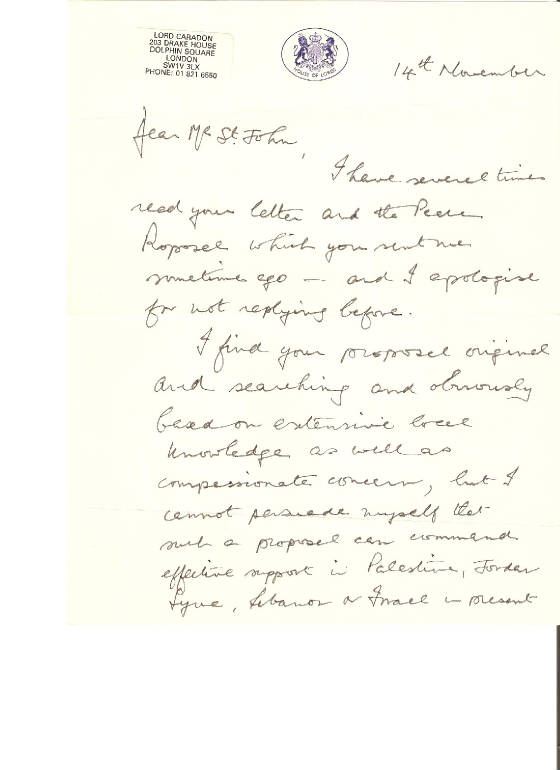 LORD CARADON
203 DRAKE HOUSE
DOLPHIN SQUARE
LONDON
SW1V 3LX
PHONE: 01 821 6550
HOUSE OF LORDS
14th November
Dear Mr St. John,
I have several times
read your letter and the Peace
Proposal which you sent me
sometime ago — and I apologise
for not replying before.
I find your proposal original
and searching and obviously
based on extensive local
knowledge as well as
compassionate concern, but I
cannot persuade myself that
such a proposal can command
effective support in Palestine, Jordan
Syria, Lebanon or Israel in present